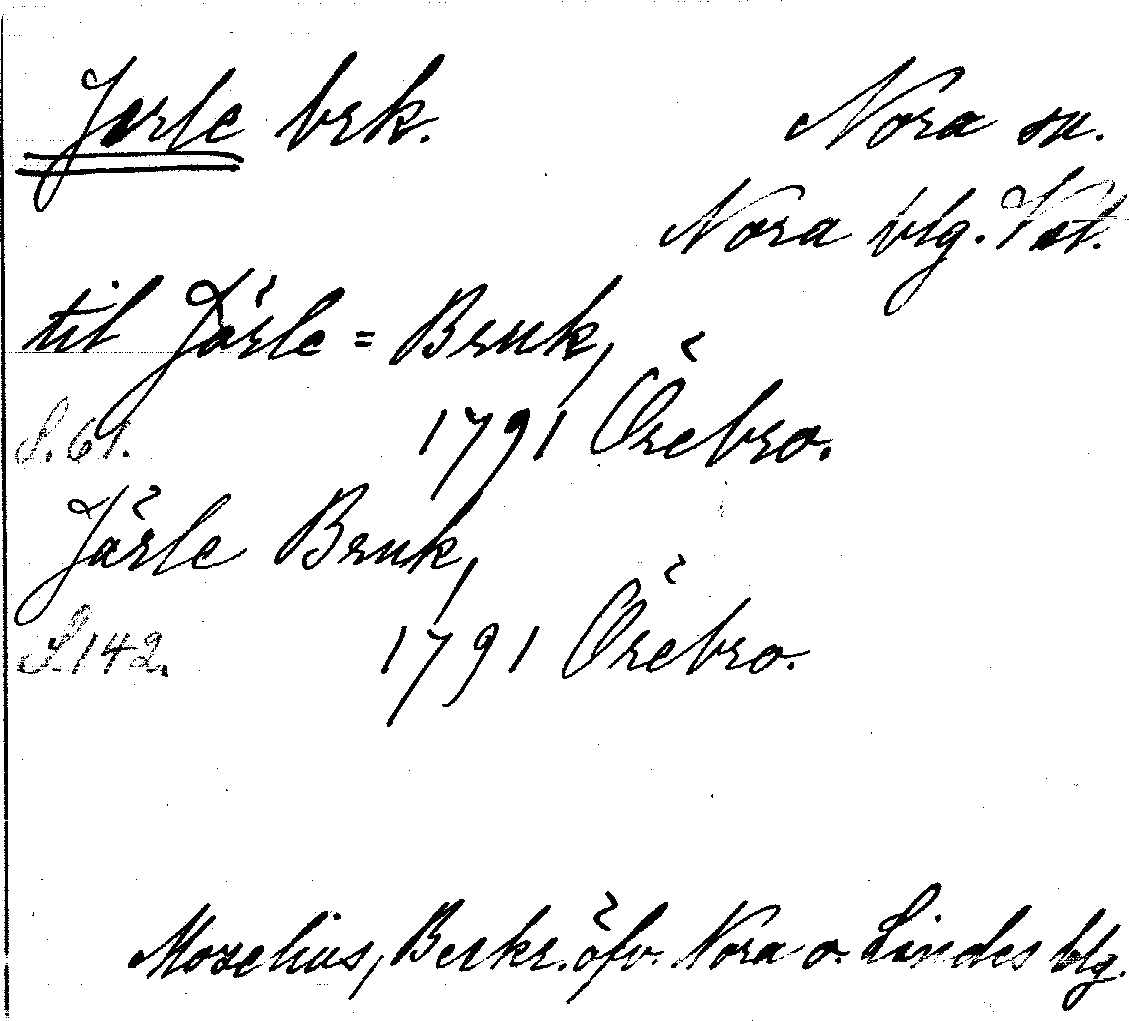 Jerle brk. Nora sn.
Nora blg. Vstm.
til Järle = Bruk,
S. 61. 1791 Örebro.
Järle Bruk,
S. 142. 1791 Örebro.
Moselius, Beskr. öfv. Nora o. Lindes blg.